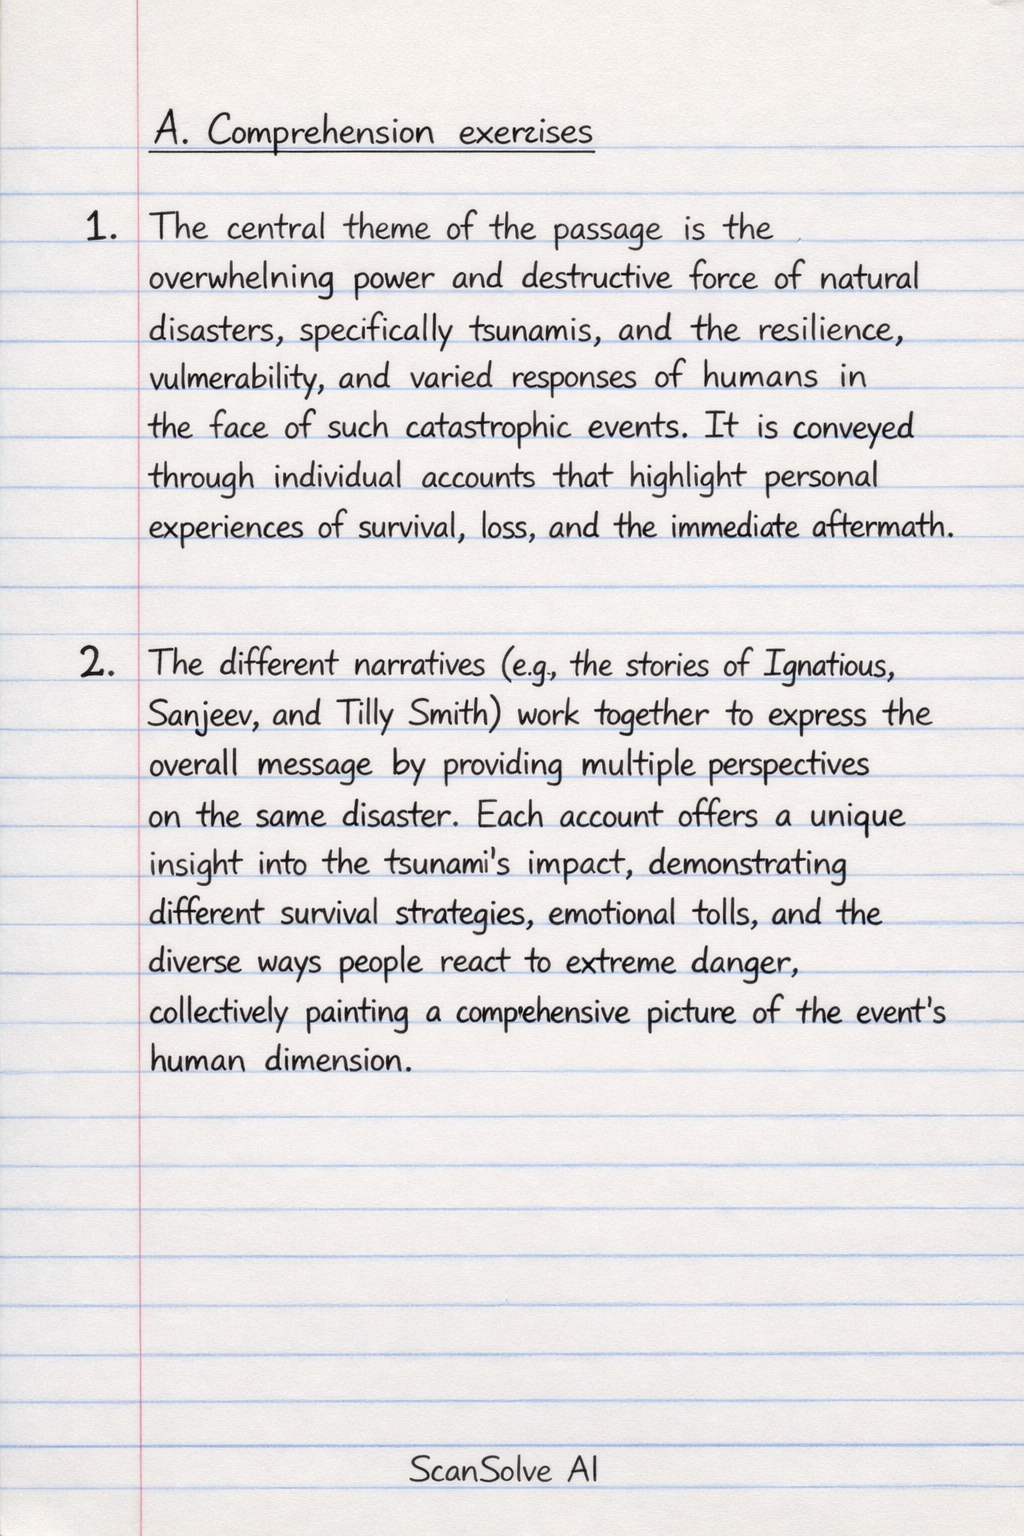 A. Comprehension exerzises
1. The central theme of the passage is the
overwhelning power and destructive force of natural
disasters, specifically tsunamis, and the resilience,
vulmerability, and varied responses of humans in
the face of such catastrophic events. It is conveyed
through individual accounts that highlight personal
experiences of survival, loss, and the immediate aftermath.
2. The different narratives (e.g., the stories of Ignatious,
Sanjeev, and Tilly Smith) work together to express the
overall message by providing multiple perspectives
on the same disaster. Each account offers a unique
insight into the tsunami's impact, demonstrating
different survival strategies, emotional tolls, and the
diverse ways people react to extreme danger,
collectively painting a comprehensive picture of the event's
human dimension.
ScanSolve AI